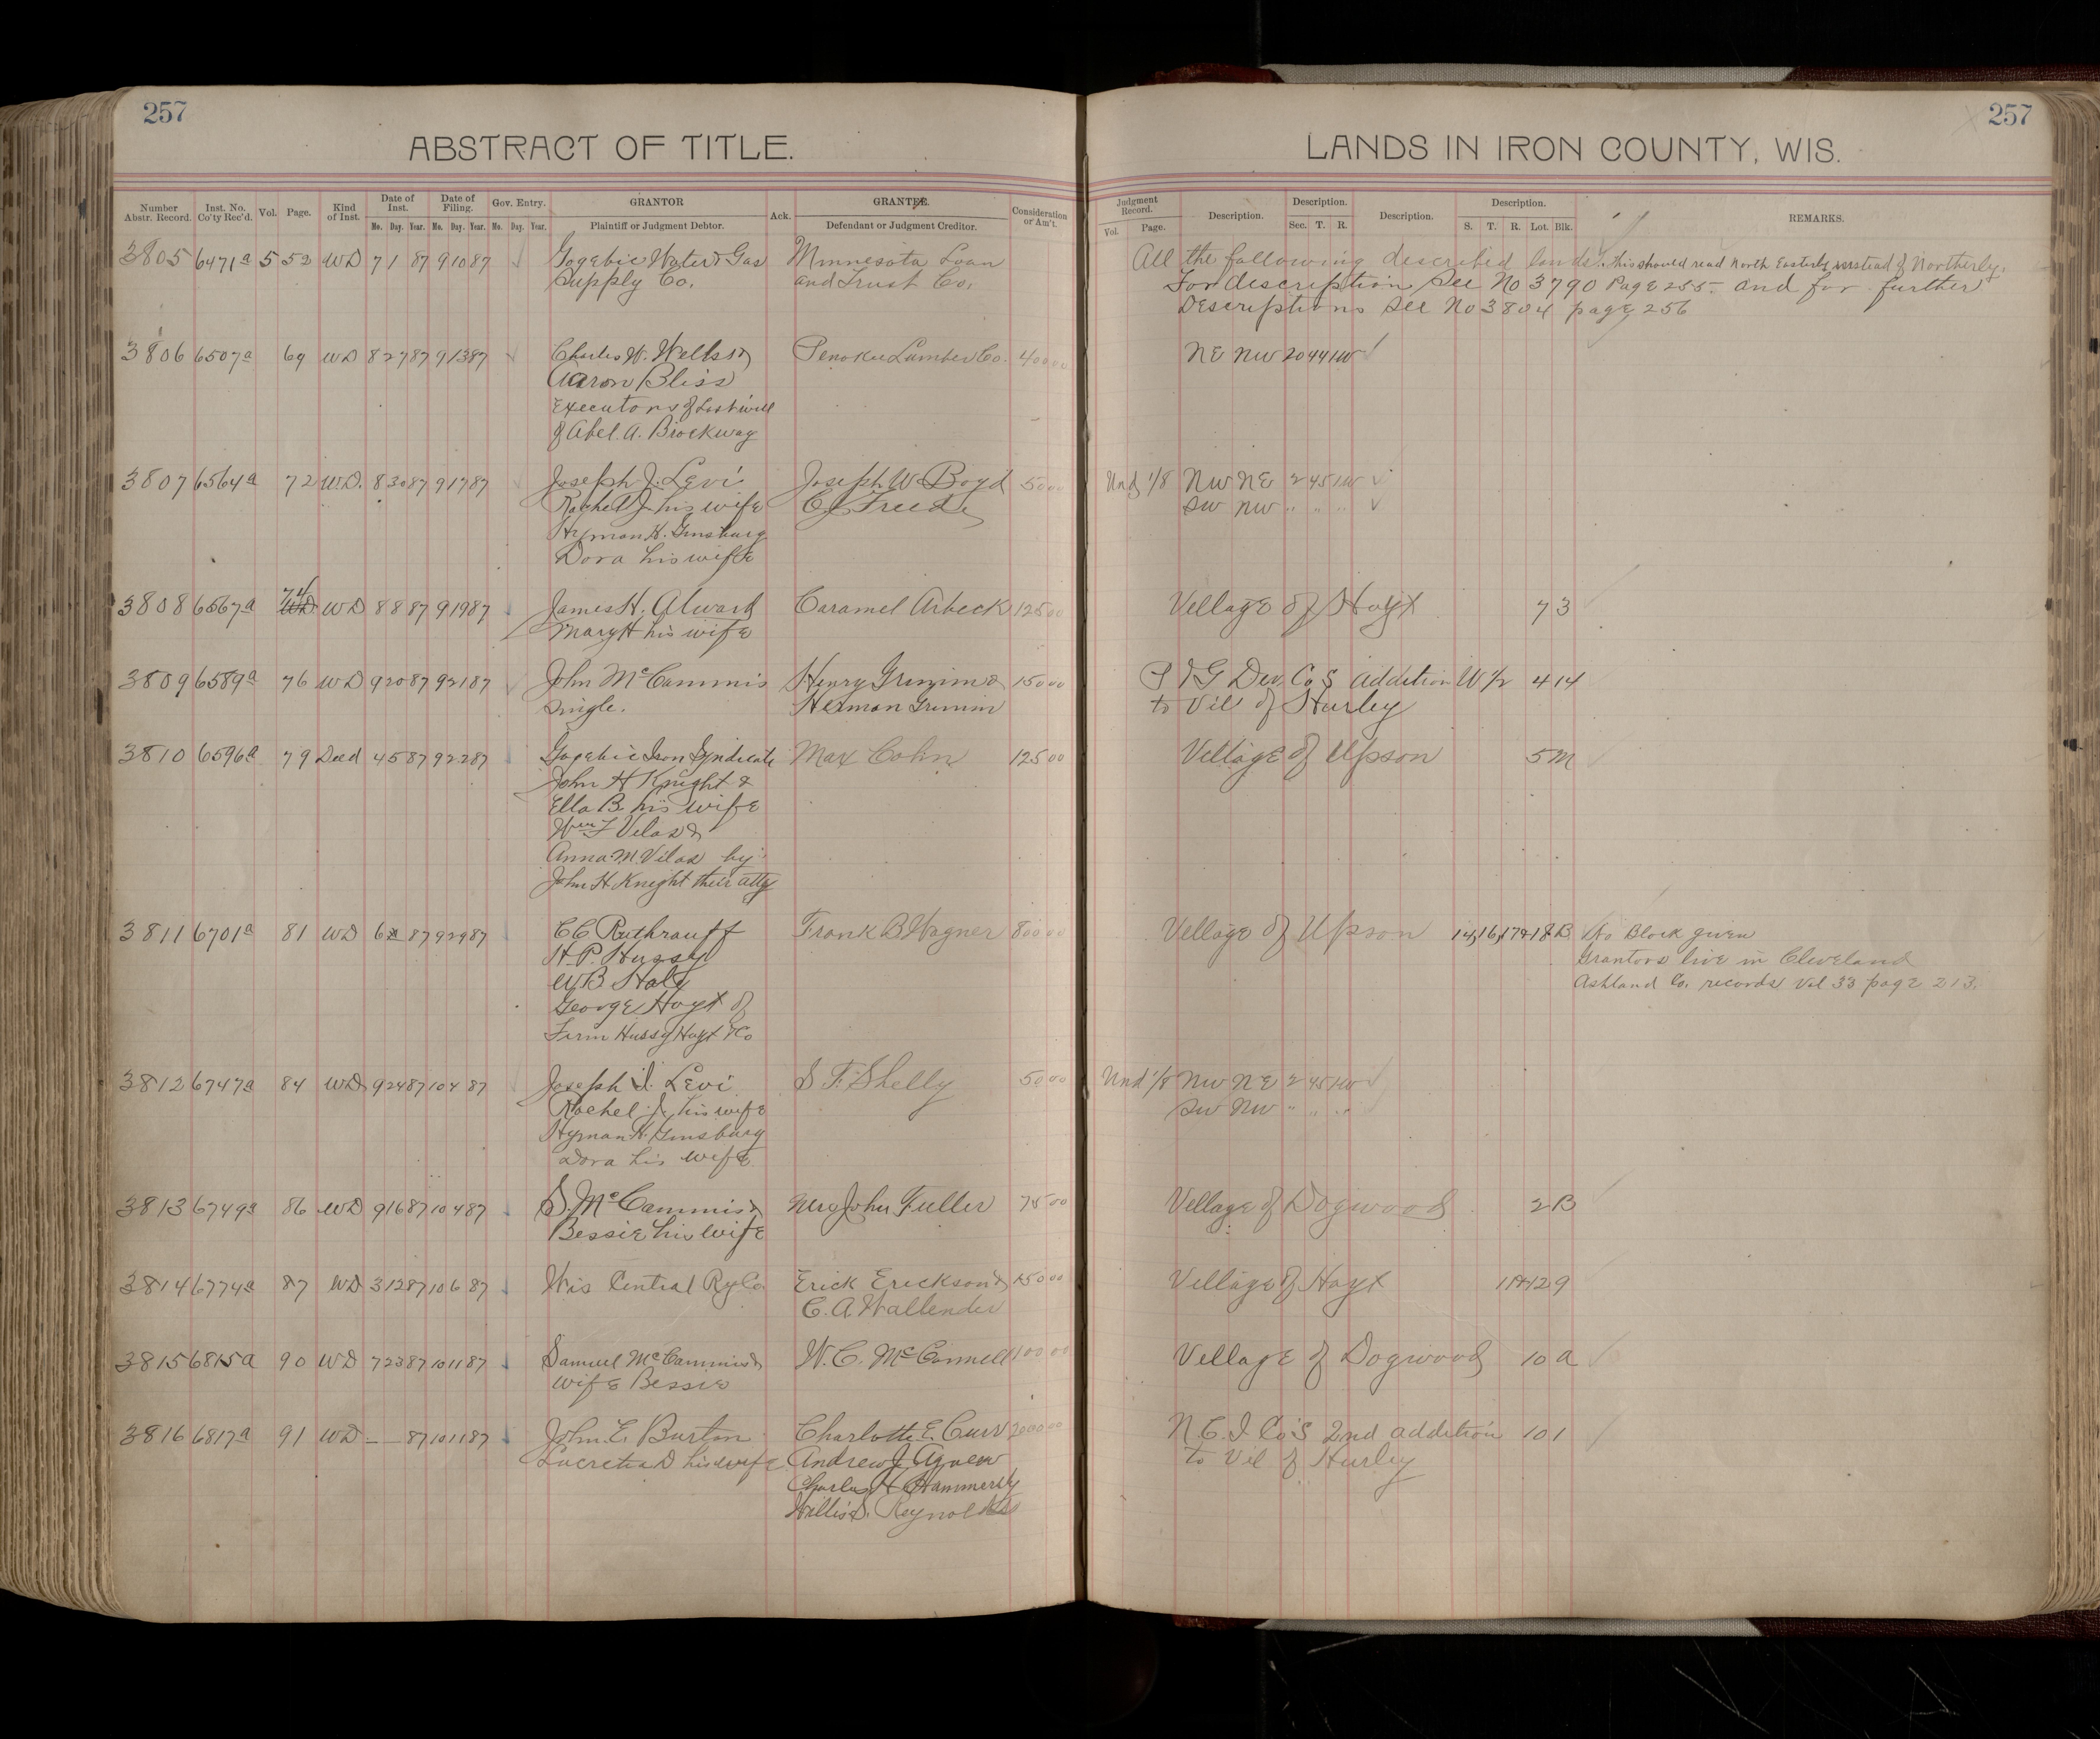 257
257
ABSTRACT OF TITLE.
LANDS IN IRON COUNTY, WIS.
Number Abstr. Record. Inst. No. Co'ty Rec'd. Vol. Page. Kind of Inst. Date of Inst. Mo. Day. Year. Date of Filing. Mo. Day. Year. Gov. Entry. Mo. Day. Year. GRANTOR Plaintiff or Judgment Debtor. Ack. GRANTEE. Defendant or Judgment Creditor. Consideration or Am't. Judgment Record. Vol. Page. Description. Description. Sec. T. R. Description. Description. S. T. R. Lot. Blk. REMARKS.
3805 6471a 5 52 WD 7 1 87 9 10 87 Gogebic Water & Gas Minnesota Loan All the following described lands. This should read North Easterly instead of Northerly.
Supply Co. and Trust Co. For description See No 3790 Page 255. and for further
Descriptions see No 3804 page 256
3806 6507a 69 WD 8 27 87 9 13 87 Charles W. Wells & Penokee Lumber Co. 400 00 NE NW 20 44 1W
Aaron Bliss
Executors of Last will
of Abel A. Brockway
3807 6564a 72 W.D. 8 30 87 9 17 87 Joseph J. Levi Joseph W. Boyd 50 00 Und 1/8 NW NE 2 45 1W
Rachel J. his wife C J Freede
Hyman H. Ginsburg SW NW " " "
Dora his wife
3808 6567a 74 WD 8 8 87 9 19 87 James H. Alward Caramel Arbeck 125 00 Village of Hoyt 7 3
Mary H his wife
3809 6589a 76 WD 9 20 87 9 21 87 John McCammis Henry Grimm & 150 00 P & G Dev. Co's addition W 1/2 4 14
single. Herman Grimm to Vil of Hurley
3810 6596a 79 Deed 4 5 87 9 22 87 Gogebic Iron Syndicate Max Cohn 125 00 Village of Upson 5 M
John H Knight &
Ella B. his wife
Wm F Vilas &
Anna M. Vilas by
John H. Knight their atty
3811 6701a 81 WD 6 87 9 29 87 C C Ruthrauff Frank B Wagner 800 00 Village of Upson 14,16,17&18 B No Block given
H. P. Hussy Grantors live in Cleveland
W B Ashland Co. records Vol 33 page 213.
George Hoyt of
Firm Hussy Hoyt & Co
3812 6747a 84 WD 9 24 87 10 4 87 Joseph J. Levi S. F. Shelly 50 00 Und 1/8 NW NE 2 45 1W
Rachel J. his wife SW NW " " "
Hyman H. Ginsburg
Dora his wife
3813 6749a 86 WD 9 16 87 10 4 87 S. McCammis & Mrs John Fuller 75 00 Village of Dogwood 2 B
Bessie his wife
3814 6774a 87 WD 3 12 87 10 6 87 Wis Central Ry Co Erick Erickson & 150 00 Village of Hoyt 11&12 9
C. A. Wallender
3815 6815a 90 WD 7 23 87 10 11 87 Samuel McCammis & W. C. McConnell 100 00 Village of Dogwood 10 a
wife Bessie
3816 6817a 91 WD — — 87 10 11 87 John E. Burton Charlotte E. Curr 2000 00 N. C. I. Co's 2nd addition 10 1
Lucretia D his wife Andrew J. Agnew to Vil of Hurley
Charles H Hammersly
Willis S. Reynolds